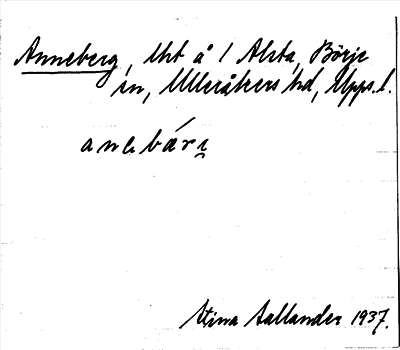 Anneberg, lht å 1 Alsta, Börje
sn, Ulleråkers hd, Upps. l.
anebärı̯
Stina Sallander 1937.